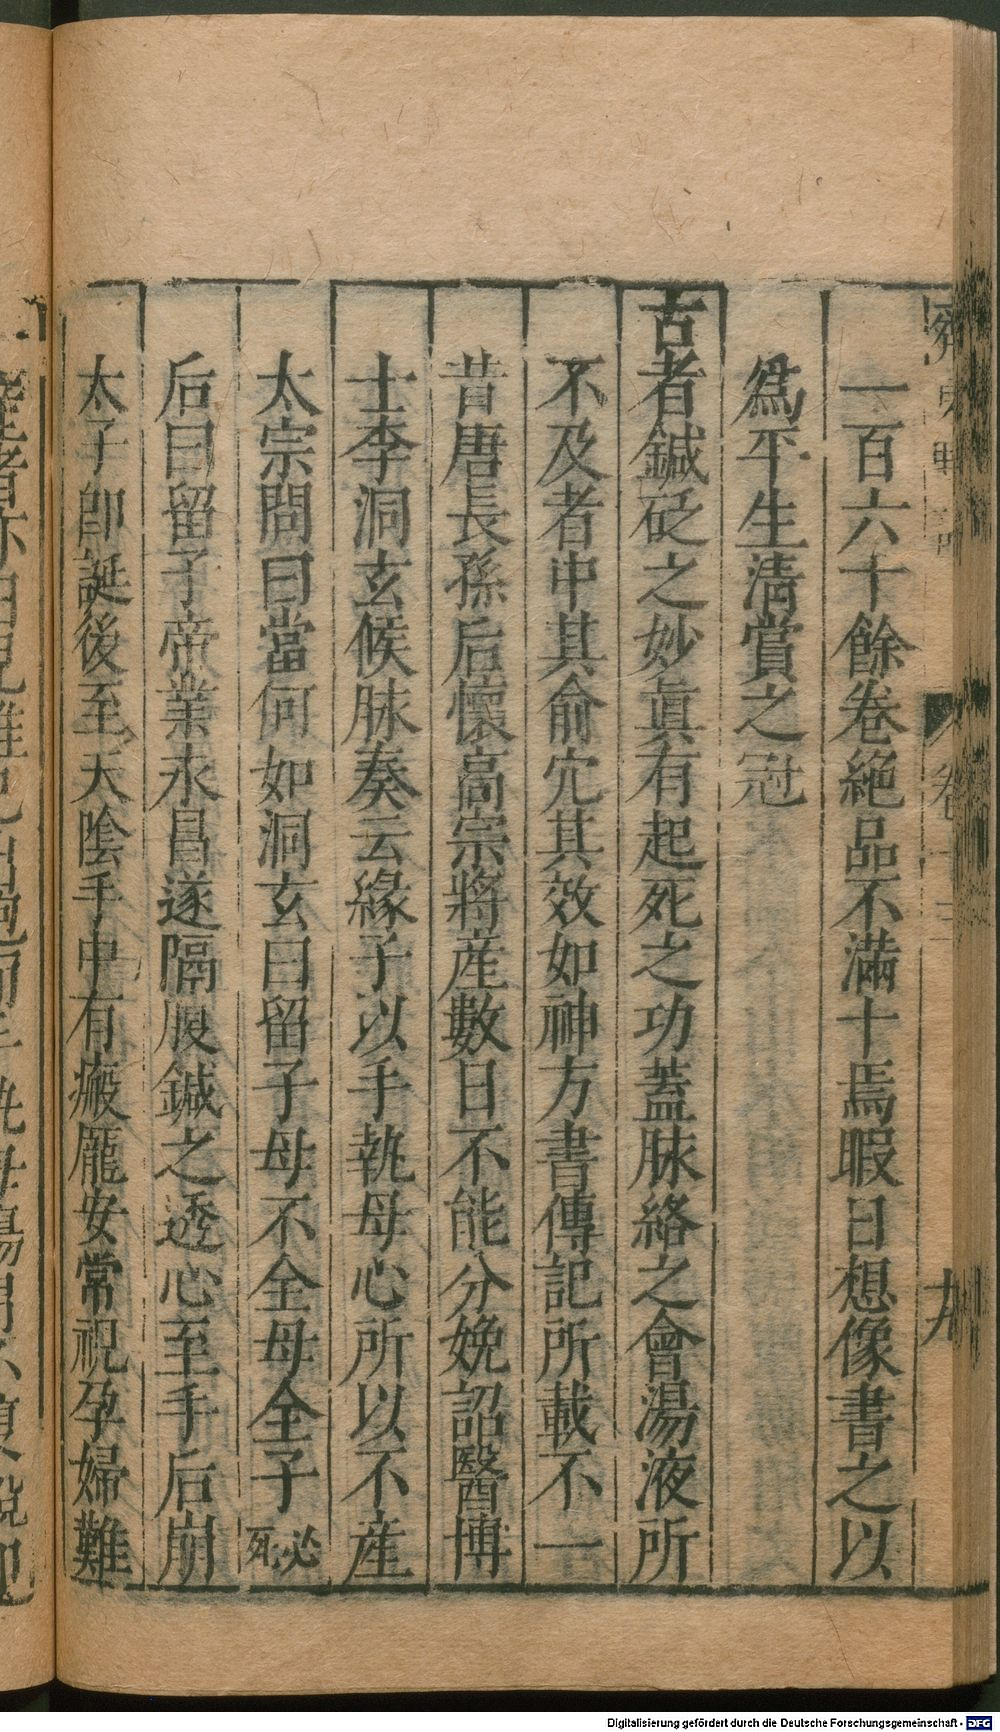 一百六十餘卷絶品不滿十焉暇日想像書之以
爲平生清賞之冠
古者鍼砭之妙眞有起死之功蓋脉絡之會湯液所
不及者中其俞穴其效如神方書傳記所載不一
昔唐長孫后懷高宗將産數日不能分娩詔醫博
士李洞玄候脉奏云緣子以手執母心所以不産
太宗問曰當何如洞玄曰留子母不全母全子必死
后曰留子帝業永昌遂隔腹鍼之透心至手后崩
太子卽誕後至天陰手中有瘢龎安常祝孕婦難
卷十三
Digitalisierung gefördert durch die Deutsche Forschungsgemeinschaft - DFG